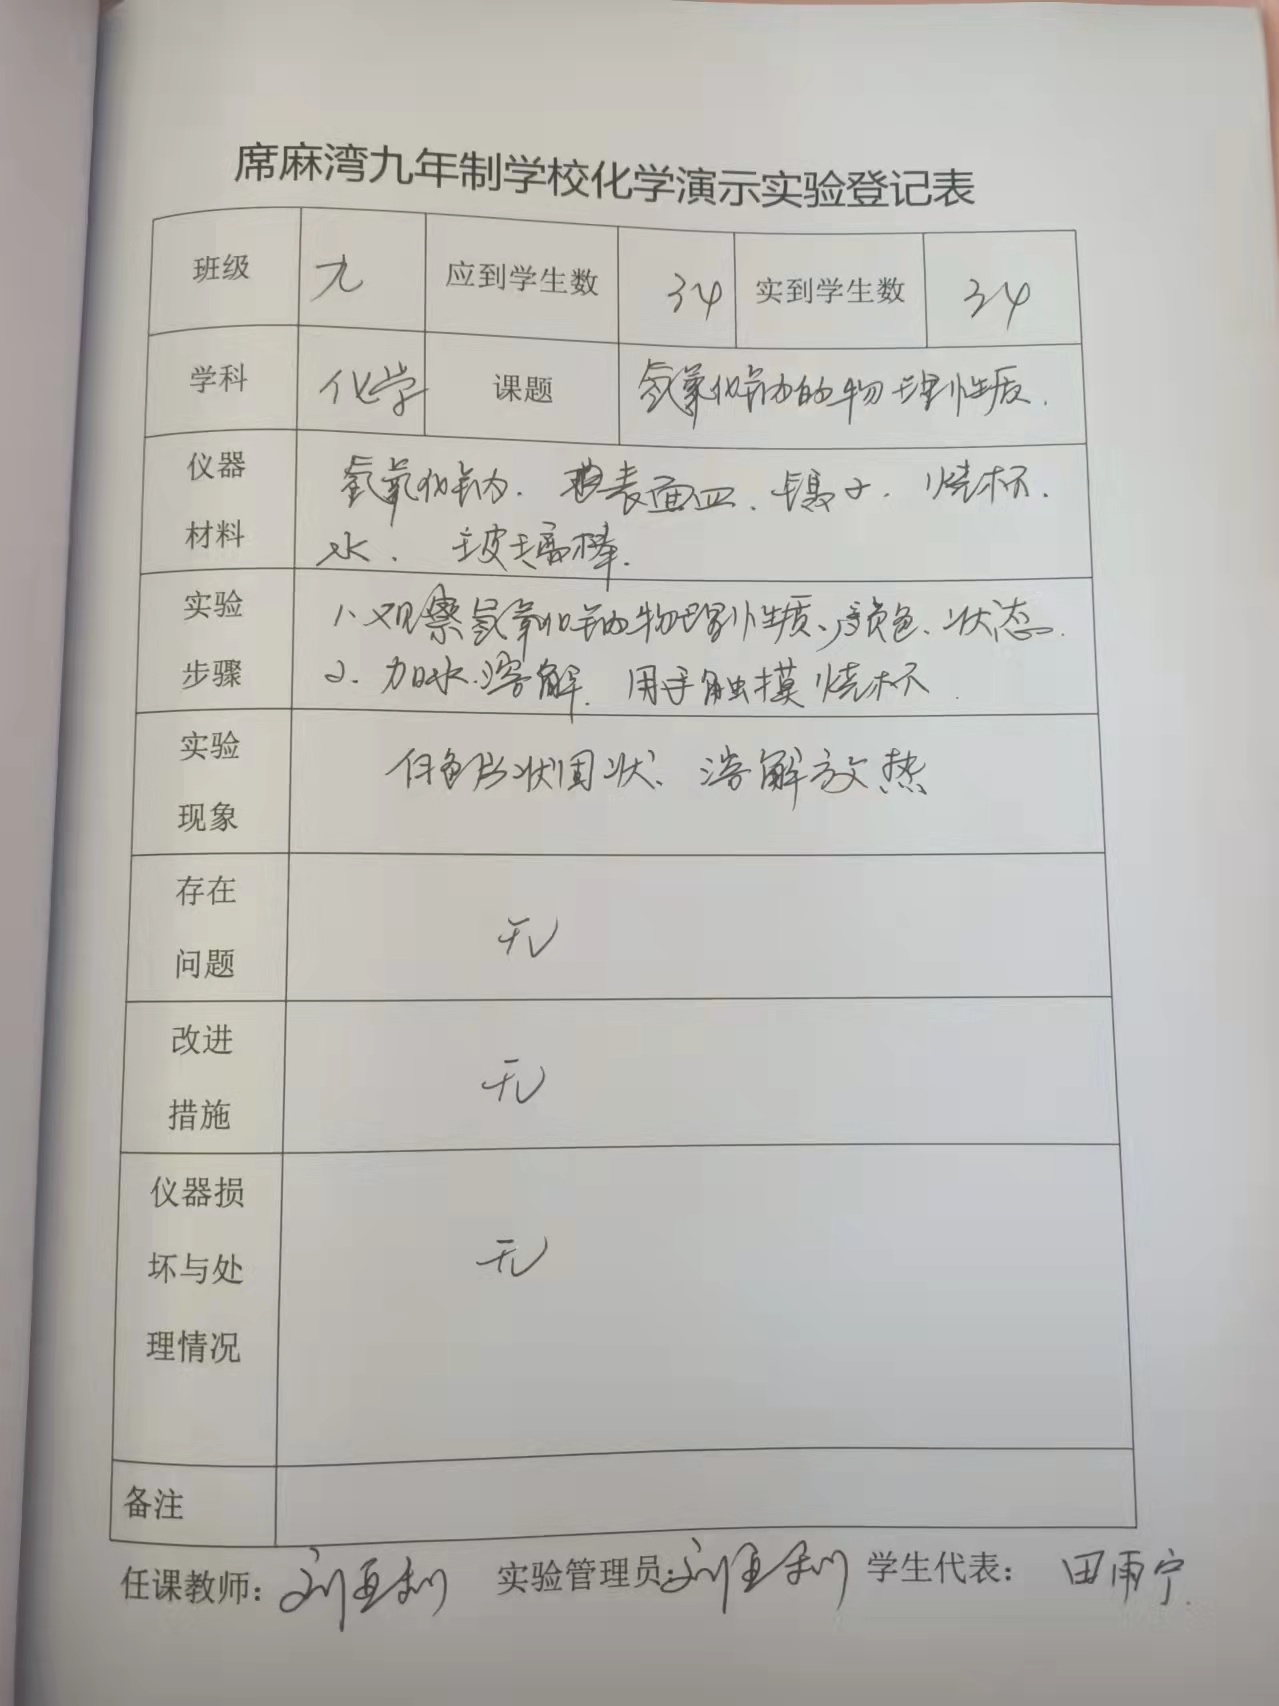 席麻湾九年制学校化学演示实验登记表
班级 九 应到学生数 34 实到学生数 34
学科 化学 课题 氢氧化钠的物理性质.
仪器
材料
氢氧化钠. 表面皿. 镊子. 烧杯.
水. 玻璃棒.
实验
步骤
1. 观察氢氧化钠物理性质、颜色、状态.
2. 加水溶解. 用手触摸烧杯.
实验
现象
白色片状固状、溶解放热
存在
问题
无
改进
措施
无
仪器损
坏与处
理情况
无
备注
任课教师: 刘亚利 实验管理员: 刘亚利 学生代表: 田雨宁